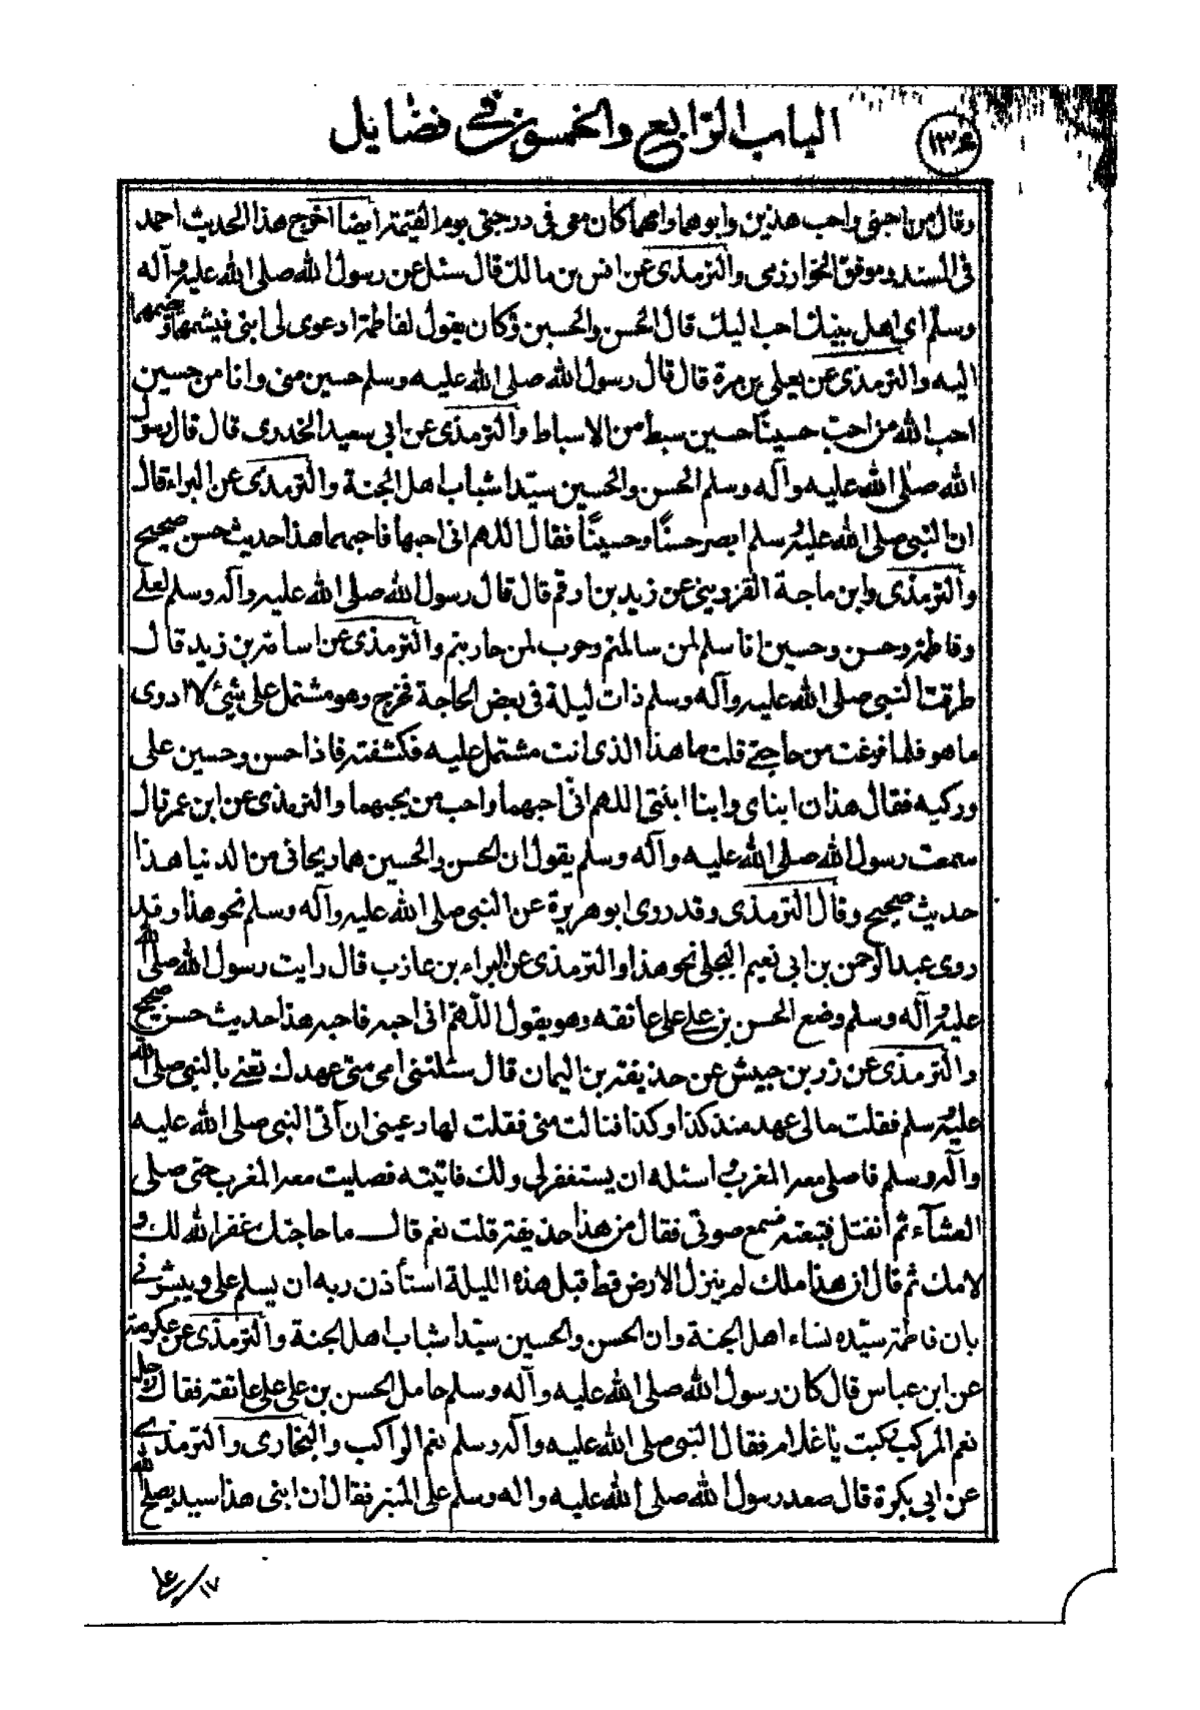 الباب الرابع والخمسون في فضايل
وقال من احبنى واحب هذين وابوهما وامهما كان معى فى درجتى يوم القيمة ايضا اخرج هذا الحديث احمد
فى المسند وموفق الخوارزمى والترمذى عن انس بن مالك قال سئل عن رسول الله صلى الله عليه وآله
وسلم اى اهل بيتك احب اليك قال الحسن والحسين وكان يقول لفاطمة ادعوى لى ابنى فيشمهما ويضمهما
اليه والترمذى عن يعلى بن مرة قال قال رسول الله صلى الله عليه وسلم حسين منى وانا من حسين
احب الله من احب حسينًا حسين سبط من الاسباط والترمذى عن ابى سعيد الخدرى قال قال رسول
الله صلى الله عليه وآله وسلم الحسن والحسين سيدا شباب اهل الجنة والترمذى عن البراء قال
ان النبى صلى الله عليه وسلم ابصر حسنًا وحسينًا فقال اللهم انى احبهما فاحبهما هذا حديث حسن صحيح
والترمذى وابن ماجة القزوينى عن زيد بن ارقم قال قال رسول الله صلى الله عليه وآله وسلم لعلى
وفاطمة وحسن وحسين انا سلم لمن سالمتم وحرب لمن حاربتم والترمذى عن اسامة بن زيد قال
طرقت النبى صلى الله عليه وآله وسلم ذات ليلة فى بعض الحاجة فخرج وهو مشتمل على شيئ لا ادرى
ما هو فلما فرغت من حاجتى قلت ما هذا الذى انت مشتمل عليه فكشفته فاذا حسن وحسين على
وركيه فقال هذان ابناى وابنا ابنتى اللهم انّى احبهما واحب من يحبهما والترمذى عن ابن عمر قال
سمعت رسول الله صلى الله عليه وآله وسلم يقول ان الحسن والحسين هما ريحانى من الدنيا هذا
حديث صحيح وقال الترمذى وقد روى ابو هريرة عن النبى صلى الله عليه وآله وسلم نحو هذا وقد
روى عبد الرحمن بن ابى نعيم البجلى نحو هذا والترمذى عن البراء بن عازب قال رايت رسول الله صلى الله
عليه وآله وسلم وضع الحسن بن على على عاتقه وهو يقول اللّهمّ انى احبه فاحبه هذا حديث حسن صحيح
والترمذى عن زر بن حبيش عن حذيفة بن اليمان قال سئلتنى امى متى عهدك تعنى بالنبى صلى الله
عليه وسلم فقلت مالى عهد منذ كذا وكذا فنالت منى فقلت لها دعينى ان آتى النبى صلى الله عليه
وآله وسلم فاصلى معه المغرب واسئله ان يستغفر لى ولك فاتيته فصليت معه المغرب حتى صلى
العشآء ثم انفتل فتبعته فسمع صوتى فقال من هذا حذيفة قلت نعم قال ما حاجتك غفر الله لك و
لامك ثم قال ان هذا ملك لم ينزل الارض قط قبل هذه الليلة استأذن ربه ان يسلم على ويبشرنى
بان فاطمة سيّده نساء اهل الجنة وان الحسن والحسين سيّدا شباب اهل الجنة والترمذى عن عكرمة
عن ابن عباس قال كان رسول الله صلى الله عليه وآله وسلم حامل الحسن بن على على عاتقه فقال رجل
نعم المركب ركبت يا غلام فقال النبى صلى الله عليه وآله وسلم نعم الراكب والبخارى والترمذى
عن ابى بكرة قال صعد رسول الله صلى الله عليه واله وسلم على المنبر فقال ان ابنى هذا سيد يصلح الله